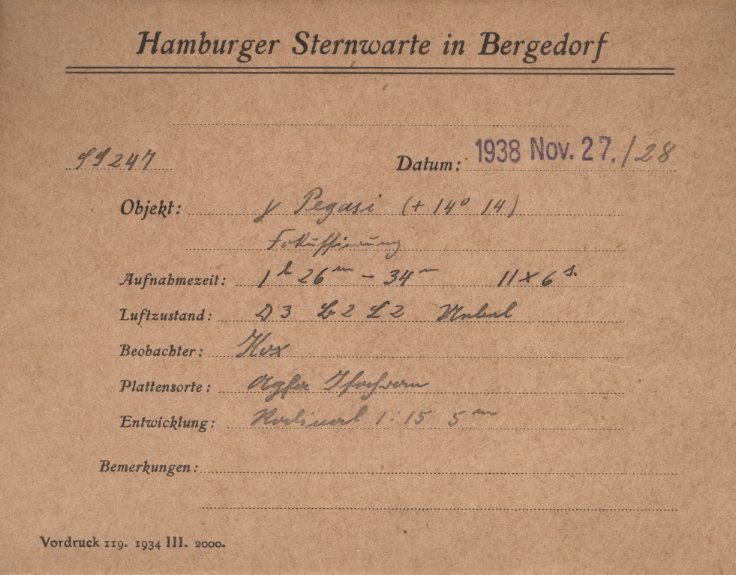 Hamburger Sternwarte in Bergedorf
SS247 Datum: 1938 Nov. 27./28
Objekt: γ Pegasi (+14° 14)
Fokussierung
Aufnahmezeit: 1h 26m – 34m 11 x 6s.
Luftzustand: D3 B2 L2 Nebel
Beobachter: Kox
Plattensorte: Agfa Isochrom
Entwicklung: Rodinal 1:15 5m
Bemerkungen:
Vordruck 119. 1934 III. 2000.